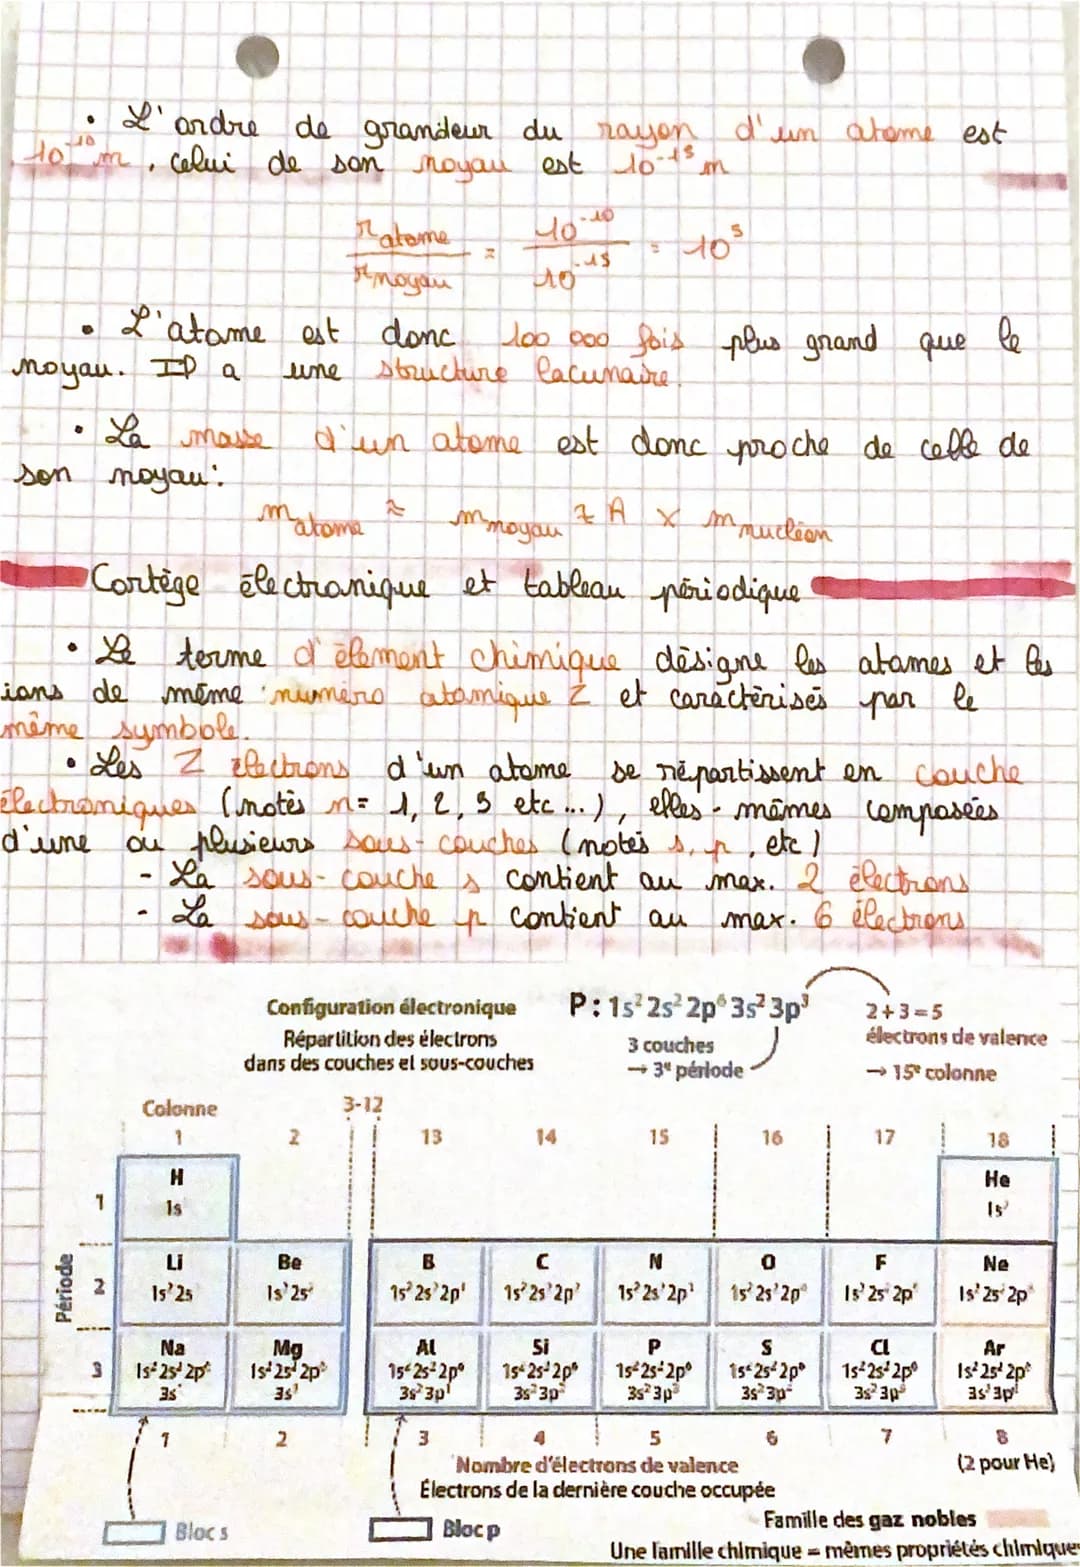 • L'ordre de grandeur du rayon d'un atome est
10⁻¹⁰ m, celui de son noyau est 10⁻¹⁵ m
r atome / r noyau = 10⁻¹⁰ / 10⁻¹⁵ = 10⁵
• L'atome est donc 100 000 fois plus grand que le
noyau. Il a une structure lacunaire.
• La masse d'un atome est donc proche de celle de
son noyau :
m atome ≈ m noyau ≈ A × m nucléon
Cortège électronique et tableau périodique
• Le terme d'élement chimique désigne les atomes et les
ions de même numéro atomique Z et caractérisés par le
même symbole.
• Les Z électrons d'un atome se répartissent en couche
électroniques (notés n= 1, 2, 3 etc...), elles-mêmes composées
d'une ou plusieurs sous-couches (notés s, p, etc)
- La sous-couche s contient au max. 2 électrons
- La sous-couche p contient au max. 6 électrons
Configuration électronique
Répartition des électrons
dans des couches et sous-couches
P : 1s² 2s² 2p⁶ 3s² 3p³
3 couches
→ 3ᵉ période
2+3=5
électrons de valence
→ 15ᵉ colonne
Colonne 3-12
1 2 13 14 15 16 17 18
Période
1
H He
2
Li Be B C N O F Ne
3
Na Mg Al Si P S Cl Ar
1 2 3 4 5 6 7 8
(2 pour He)
Nombre d'électrons de valence
Électrons de la dernière couche occupée
Bloc s Bloc p
Famille des gaz nobles
Une famille chimique = mêmes propriétés chimiques